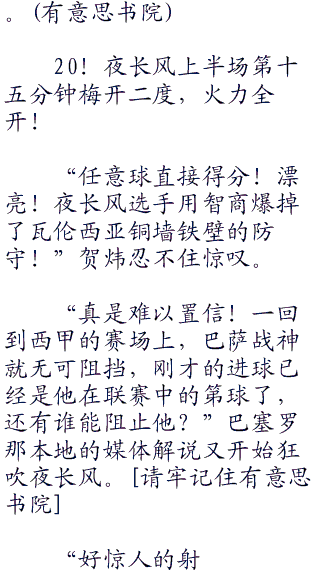 。(有意思书院)
20！夜长风上半场第十
五分钟梅开二度，火力全
开！
“任意球直接得分！漂
亮！夜长风选手用智商爆掉
了瓦伦西亚铜墙铁壁的防
守！”贺炜忍不住惊叹。
“真是难以置信！一回
到西甲的赛场上，巴萨战神
就无可阻挡，刚才的进球已
经是他在联赛中的第球了，
还有谁能阻止他？”巴塞罗
那本地的媒体解说又开始狂
吹夜长风。[请牢记住有意思
书院]
“好惊人的射